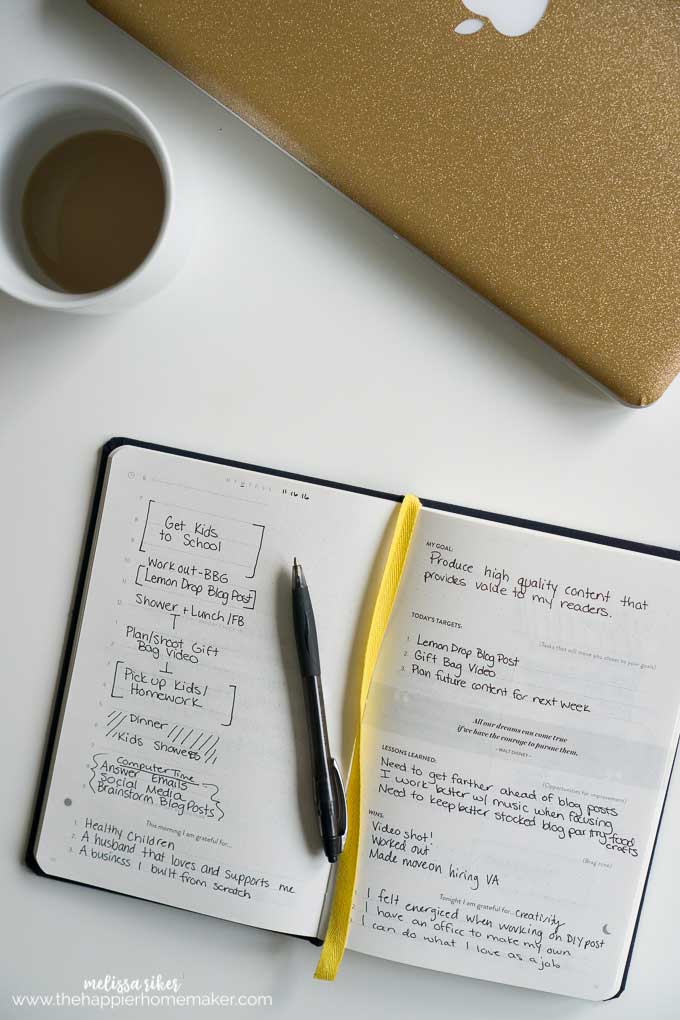 6
M T W T F S S 11·16·16
7
8
9
10
11
12
1
2
3
4
5
6
7
8
9
Get Kids
to School
Workout-BBG
Lemon Drop Blog Post
Shower + Lunch/FB
Plan/Shoot Gift
Bag Video
Pick up Kids/
Homework
Dinner
Kids Showers
Computer Time
Answer Emails
Social Media
Brainstorm Blog Posts
This morning I am grateful for...
1. Healthy Children
2. A husband that loves and supports me
3. A business I built from scratch
MY GOAL:
Produce high quality content that
provides value to my readers.
TODAY'S TARGETS:
(Tasks that will move you closer to your goals)
1. Lemon Drop Blog Post
2. Gift Bag Video
3. Plan future content for next week
All our dreams can come true
if we have the courage to pursue them.
- WALT DISNEY -
LESSONS LEARNED:
(Opportunities for improvement)
Need to get farther ahead of blog posts
I work better w/ music when focusing
Need to keep better stocked blog pantry food
crafts
WINS:
(Brag zone)
Video shot!
Worked out
Made move on hiring VA
Tonight I am grateful for...
1. I felt energized when working on DIY post creativity
2. I have an office to make my own
3. I can do what I love as a job
melissa riker
www.thehappierhomemaker.com